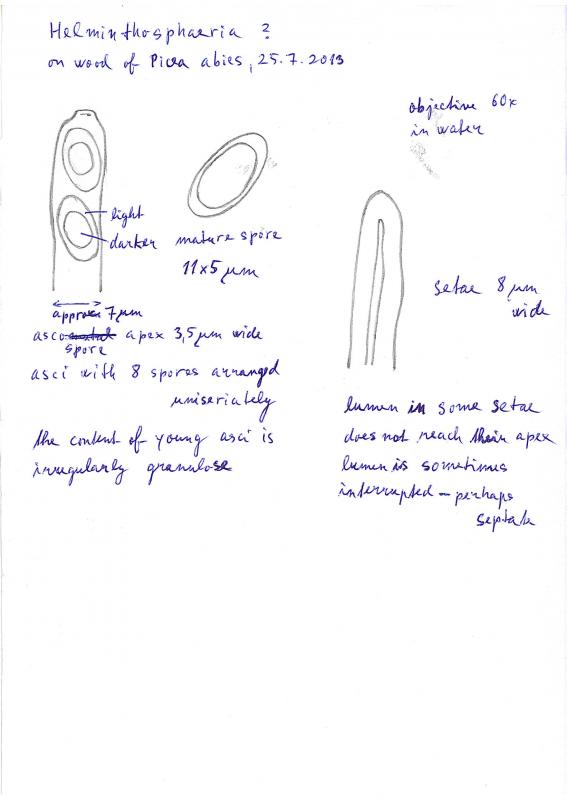 Helminthosphaeria ?
on wood of Picea abies, 25.7.2013
objective 60x
in water
light
darker
mature spore
11x5 µm
approx 7 µm
asco apex 3,5 µm wide
spore
asci with 8 spores arranged
uniseriately
the content of young asci is
irregularly granulose
setae 8 µm
wide
lumen in some setae
does not reach their apex
lumen is sometimes
interrupted – perhaps
septate